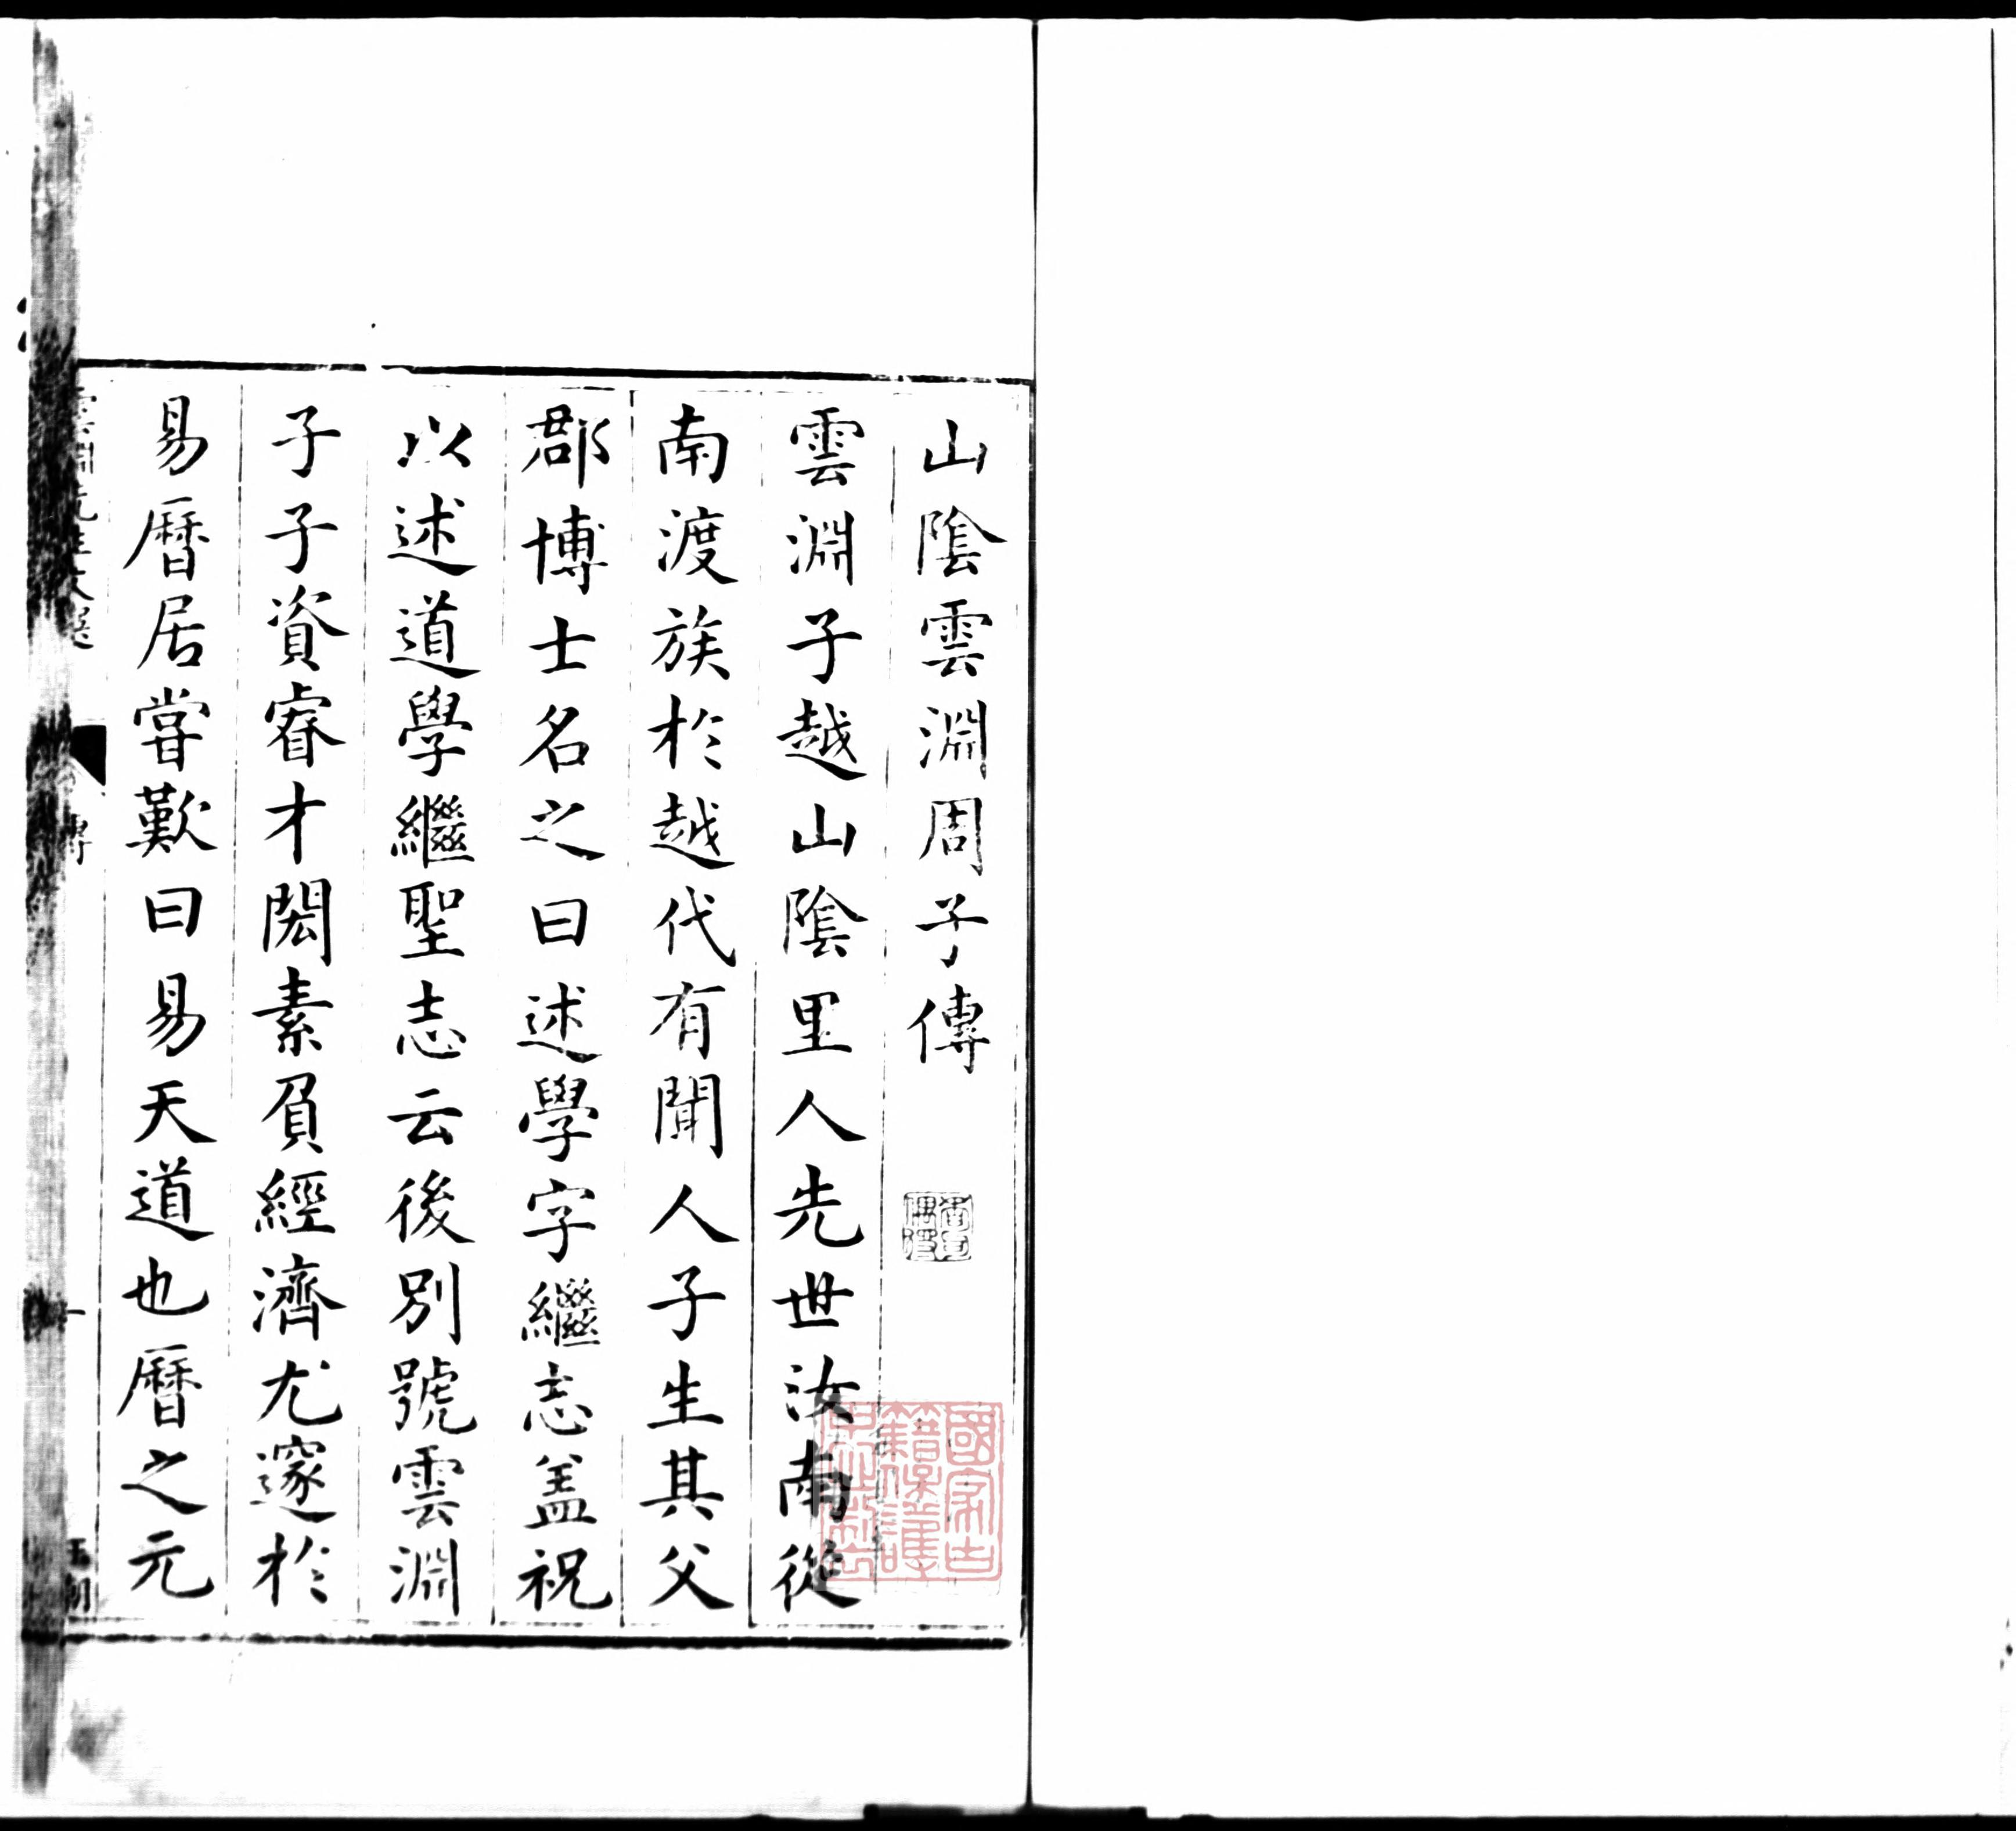 山陰雲淵周子傳
雲淵子越山陰里人先世汝南從
南渡族於越代有聞人子生其父
郡博士名之曰述學字繼志盖祝
以述道學繼聖志云後別號雲淵
子子資睿才閎素負經濟尤邃於
易曆居嘗歎曰易天道也曆之元
國家古
籍保護
傳
一